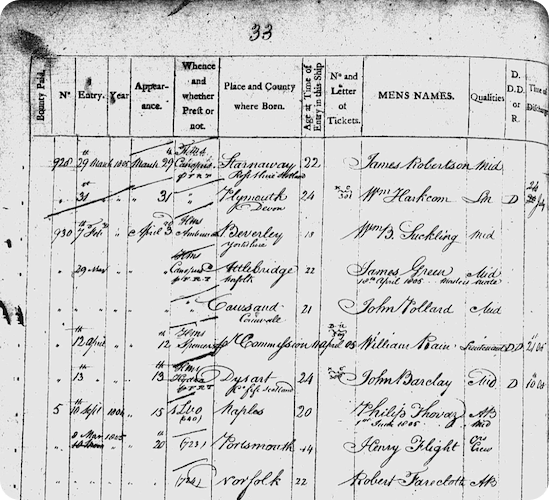 33
Bounty Paid.
Nº
Entry.
Year
Appearance.
Whence and whether Prest or not.
Place and County where Born.
Age at Time of Entry in this Ship
Nº and Letter of Tickets.
MENS NAMES.
Qualities
D. D.D. or R.
Time of Discharge
928 29th March 1805 March 29 Starnaway 22 James Robertson Mid
" 31 " " 31 " Plymouth Devon 24 Wm Harkcom Lm D
930 7 Feb " April 3 HMS Beverley Yorkshire 18 Wm B. Suckling Mid
" 29 Mar " " HMS Attlebridge Norfolk 22 James Green Mid
10th April 1805 Masters Mate
" " " " Cawsand Cornwall 21 John Pollard Mid
" 12th April " " 12 HMS Pr Commission 11 April 05 William Rain Lieutenant DD 21
" 13th " " 13th HMS Hydra Dysart Fife Scotland 24 John Barclay Mid D 10
5 10th Sept 1804 " 15 Leo Naples 20 AB
1st 1805 Mid
" 8 Mar 1805 " 20th (723) Portsmouth 14 Henry Flight Ors Crew
" " " " (724) Norfolk 22 Robert Farecloth AB